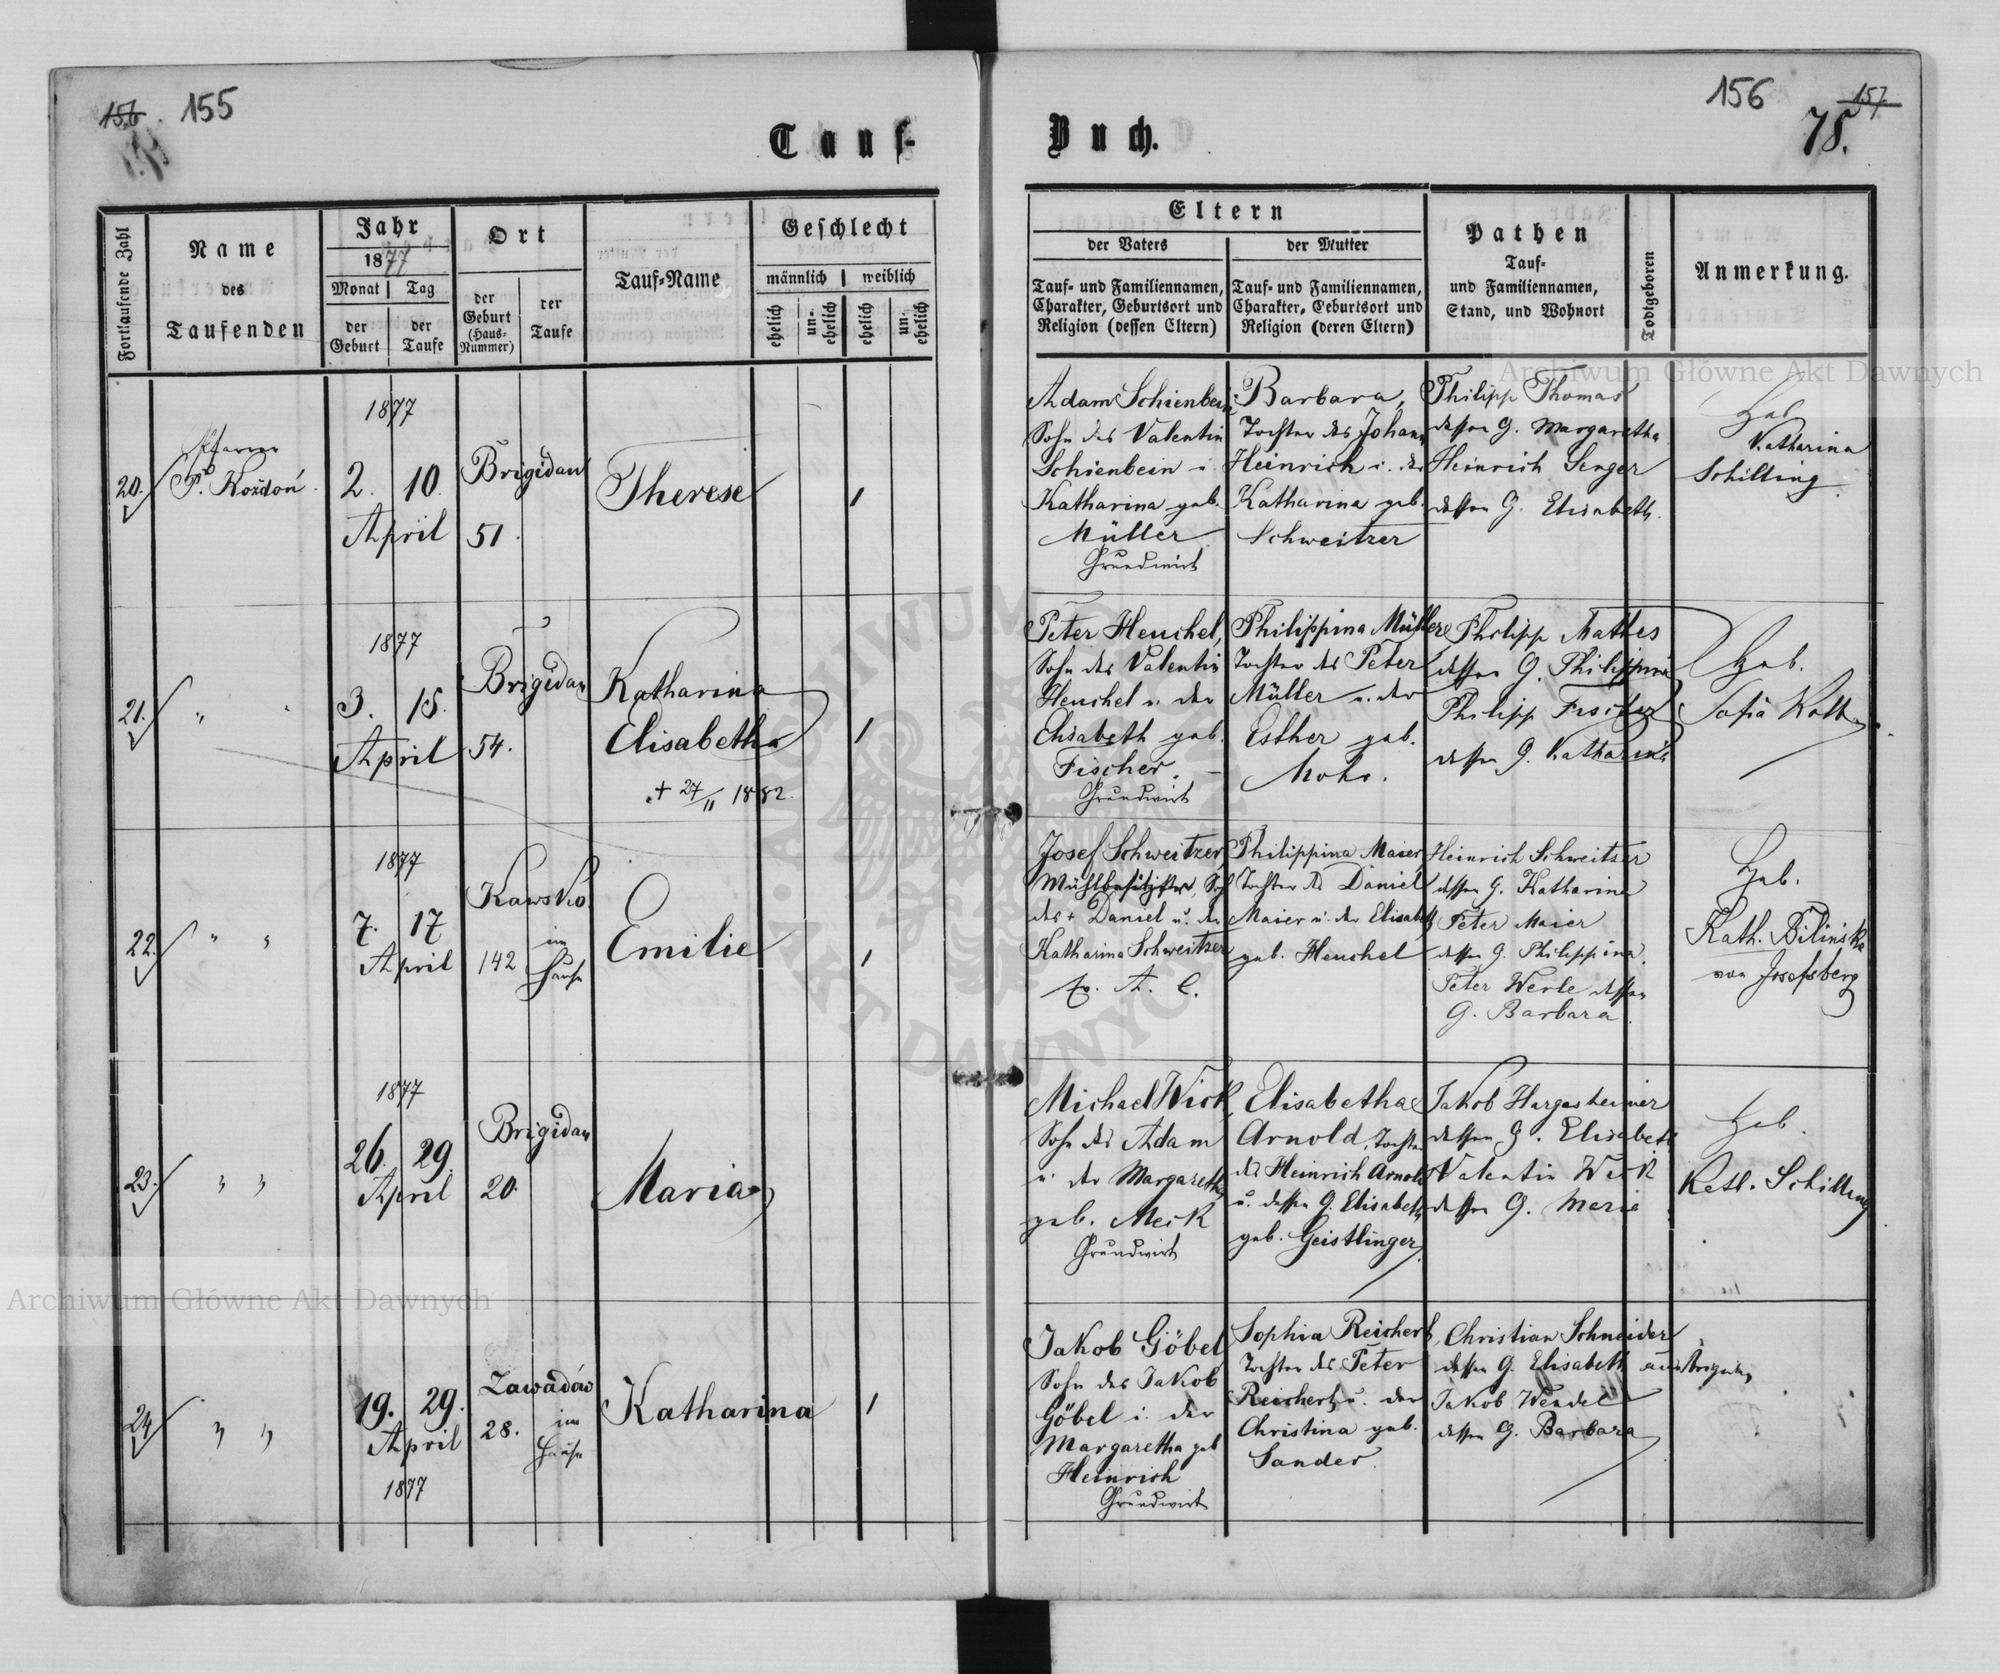 156 155
Tauf-
Fortlaufende Zahl
Name
des
Taufenden
Jahr
1877
Monat Tag
der Geburt
der Taufe
Ort
der
Geburt
(Haus-
Nummer)
der
Taufe
Tauf-Name
Geschlecht
männlich weiblich
ehelich
un-
ehelich
ehelich
un-
ehelich
1877
20. Pfarrer
P. Kożdoń
2. 10.
April
Brigidau
51.
Therese
1877
21. " "
3. 15.
April
Brigidau
54.
Katharina
Elisabetha
+ 27/11 1882.
1877
22. " "
7. 17
April
Kawsko
142 im
Hause
Emilie
1877
23. " "
26. 29.
April
Brigidau
20.
Maria
24 " "
19. 29.
April
1877
Zawadów
28. im
Hause
Katharina
156 157
78.
Buch.
Eltern
der Vaters
Tauf- und Familiennamen,
Charakter, Geburtsort und
Religion (dessen Eltern)
der Mutter
Tauf- und Familiennamen,
Charakter, Geburtsort und
Religion (deren Eltern)
Pathen
Tauf-
und Familiennamen,
Stand, und Wohnort
Todtgeboren
Anmerkung.
Adam Schienbein,
Sohn des Valentin
Schienbein u.
Katharina geb.
Müller
Grundwirt
Barbara,
Tochter des Johann
Heinrich u. der
Katharina geb.
Schweitzer
Philipp Thomas
dessen G. Margaretha
Heinrich Senger
dessen G. Elisabeth.
Heb.
Katharina
Schilling
Peter Heuchel,
Sohn des Valentin
Heuchel u. der
Elisabeth geb.
Fischer. –
Grundwirt
Philippina Müller
Tochter des Peter
Müller u. der
Esther geb.
Mohr.
Philipp Mathes
dessen G. Philippina
Philipp Fischer
dessen G. Katharina
Heb.
Sofia Kolb
Josef Schweitzer
Mühlbesitzer, Sohn
des + Daniel u. der
Katharina Schweitzer
Ev. A. C.
Philippina Maier
Tochter des Daniel
Maier u. der Elisabeth
geb. Heuchel
Heinrich Schweitzer
dessen G. Katharina
Peter Maier
dessen G. Philippina.
Peter Werle dessen
G. Barbara.
Heb.
Kath. Bilinska
von Josefsberg
Michael Wick,
Sohn des Adam
u. der Margaretha
geb. Meck
Grundwirt
Elisabetha
Arnold, Tochter
des Heinrich Arnold
u. dessen G. Elisabeth
geb. Geistlinger.
Jakob Hargesheimer
dessen G. Elisabeth
Valentin Wick
dessen G. Marie
Heb.
Kath. Schilling
Jakob Göbel
Sohn des Jakob
Göbel u. der
Margaretha geb
Heinrich
Grundwirt
Sophia Reichert,
Tochter des Peter
Reichert u. der
Christina geb.
Sander.
Christian Schneider
dessen G. Elisabeth aus Brigidau
Jakob Wendel
dessen G. Barbara
Archiwum Główne Akt Dawnych
Archiwum Główne Akt Dawnych
ARCHIWUM
AKT DAWNYCH